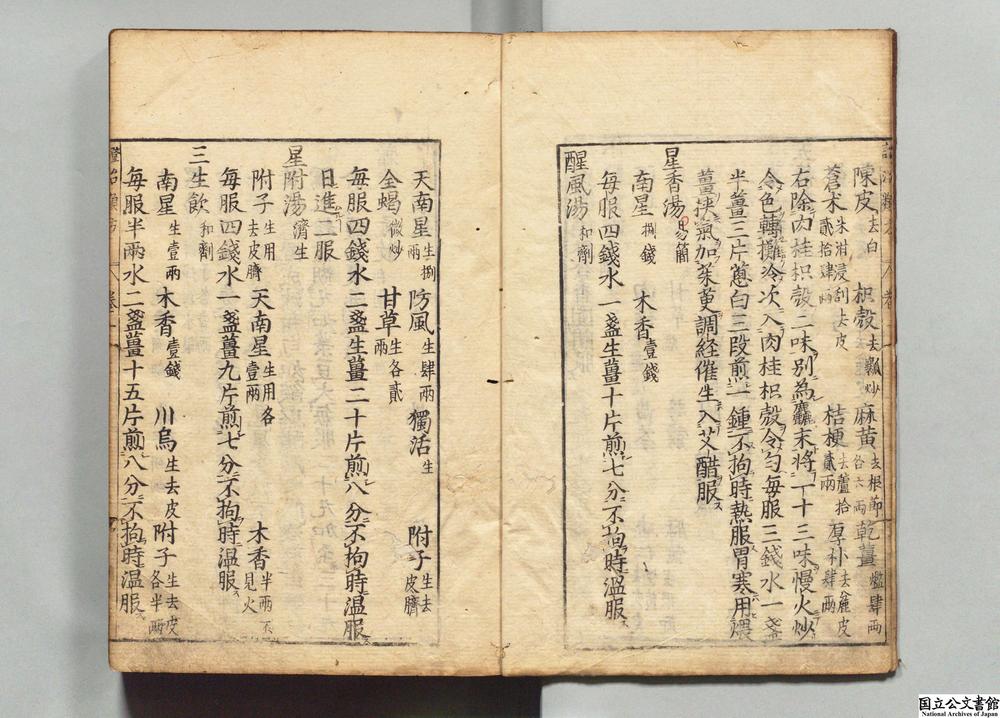 陳皮去白 枳殼去瓤炒 麻黃去根節各六兩 乾薑爁肆兩
蒼朮米泔浸刮去皮貳拾肆兩 桔梗去蘆拾貳兩 厚朴去麄皮肆兩
右除肉桂枳殼二味別為麤末將一十三味慢火炒
令色轉攤冷次入肉桂枳殼令勻每服三錢水一盞
半薑三片蔥白三段煎一鍾不拘時熱服胃寒用煨
薑挾氣加茱萸調經催生入艾醋服
星香湯易簡
南星捌錢 木香壹錢
每服四錢水一盞生薑十片煎七分不拘時溫服
醒風湯和劑
天南星生捌兩 防風生肆兩 獨活生 附子生去皮臍
全蝎微炒 甘草生各貳兩
每服四錢水二盞生薑二十片煎八分不拘時溫服
日進二服
星附湯濟生
附子生用去皮臍 天南星生用各壹兩 木香半兩不見火
每服四錢水一盞薑九片煎七分不拘時溫服
三生飲和劑
南星生壹兩 木香壹錢 川烏生去皮 附子生去皮各半兩
每服半兩水二盞薑十五片煎八分不拘時溫服
国立公文書館
National Archives of Japan